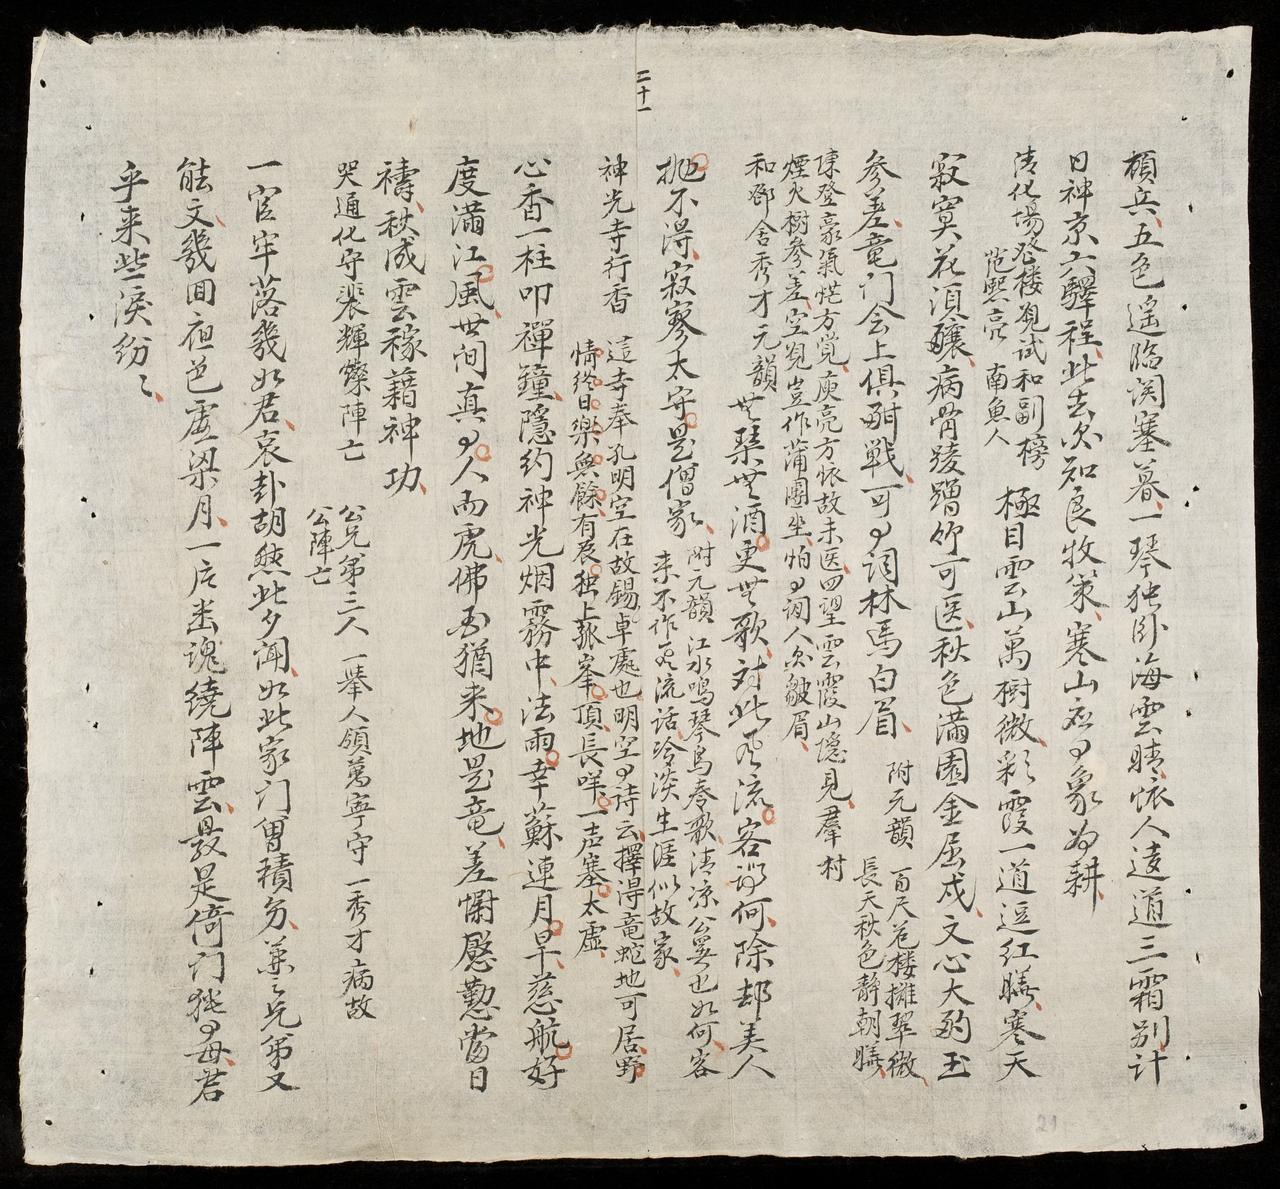 二十一
頓兵五色遥臨関塞暮一琴独卧海雲晴懐人逺道三霜別計
日神京六驛程此去欲知良牧策寒山應有象為耕
清化場登楼覌試和副榜
范熙亮 南魚人
極目雲山萬樹微彩霞一道逗紅曦寒天
寂寞花須釀病骨崚嶒竹可医秋色滿園金屈戍文心大䣭玉
参差竜门会上俱酣戰可有詞林馬白眉
附元韻 百尺危楼擁翠微
長天秋色静朝曦
陳登豪氣恍方覚庾亮方懐故未医四望雲霞山隱見羣村
煙火樹参差空覌豈作蒲團坐怕有詞人欲皺眉
和鄧舍秀才元韻
世琹世酒更世歌对此風流客謂何除却美人
抛不得寂寥太守是僧家
附元韻 江水鳴琴鳥奏歌清凉公冀也如何客
来不作風流话冷淡生涯似故家
神光寺行香
這寺奉孔明空在故錫卓處也明空有诗云擇得竜蛇地可居野
情終日楽無餘有辰独上孤峯頂長咩一声塞太虛
心香一柱叩禪鐘隱約神光烟霧中法雨幸蘇連月旱慈航好
度滿江風世间真有人而虎佛national猶来地是竜差慰慇懃當日
禱秋成雲稼藉神功
哭通化守裴輝燦陣亡
公兄第三人一举人領萬寧守一秀才病故
公陣亡
一官牢落幾如君哀卦胡然此夕闻如此家门曾積匆兼之兄第又
能文幾囬夜邑虛梁月一片幽魂繞陣雲最是倚门犹有母君
乎来些淚纷々